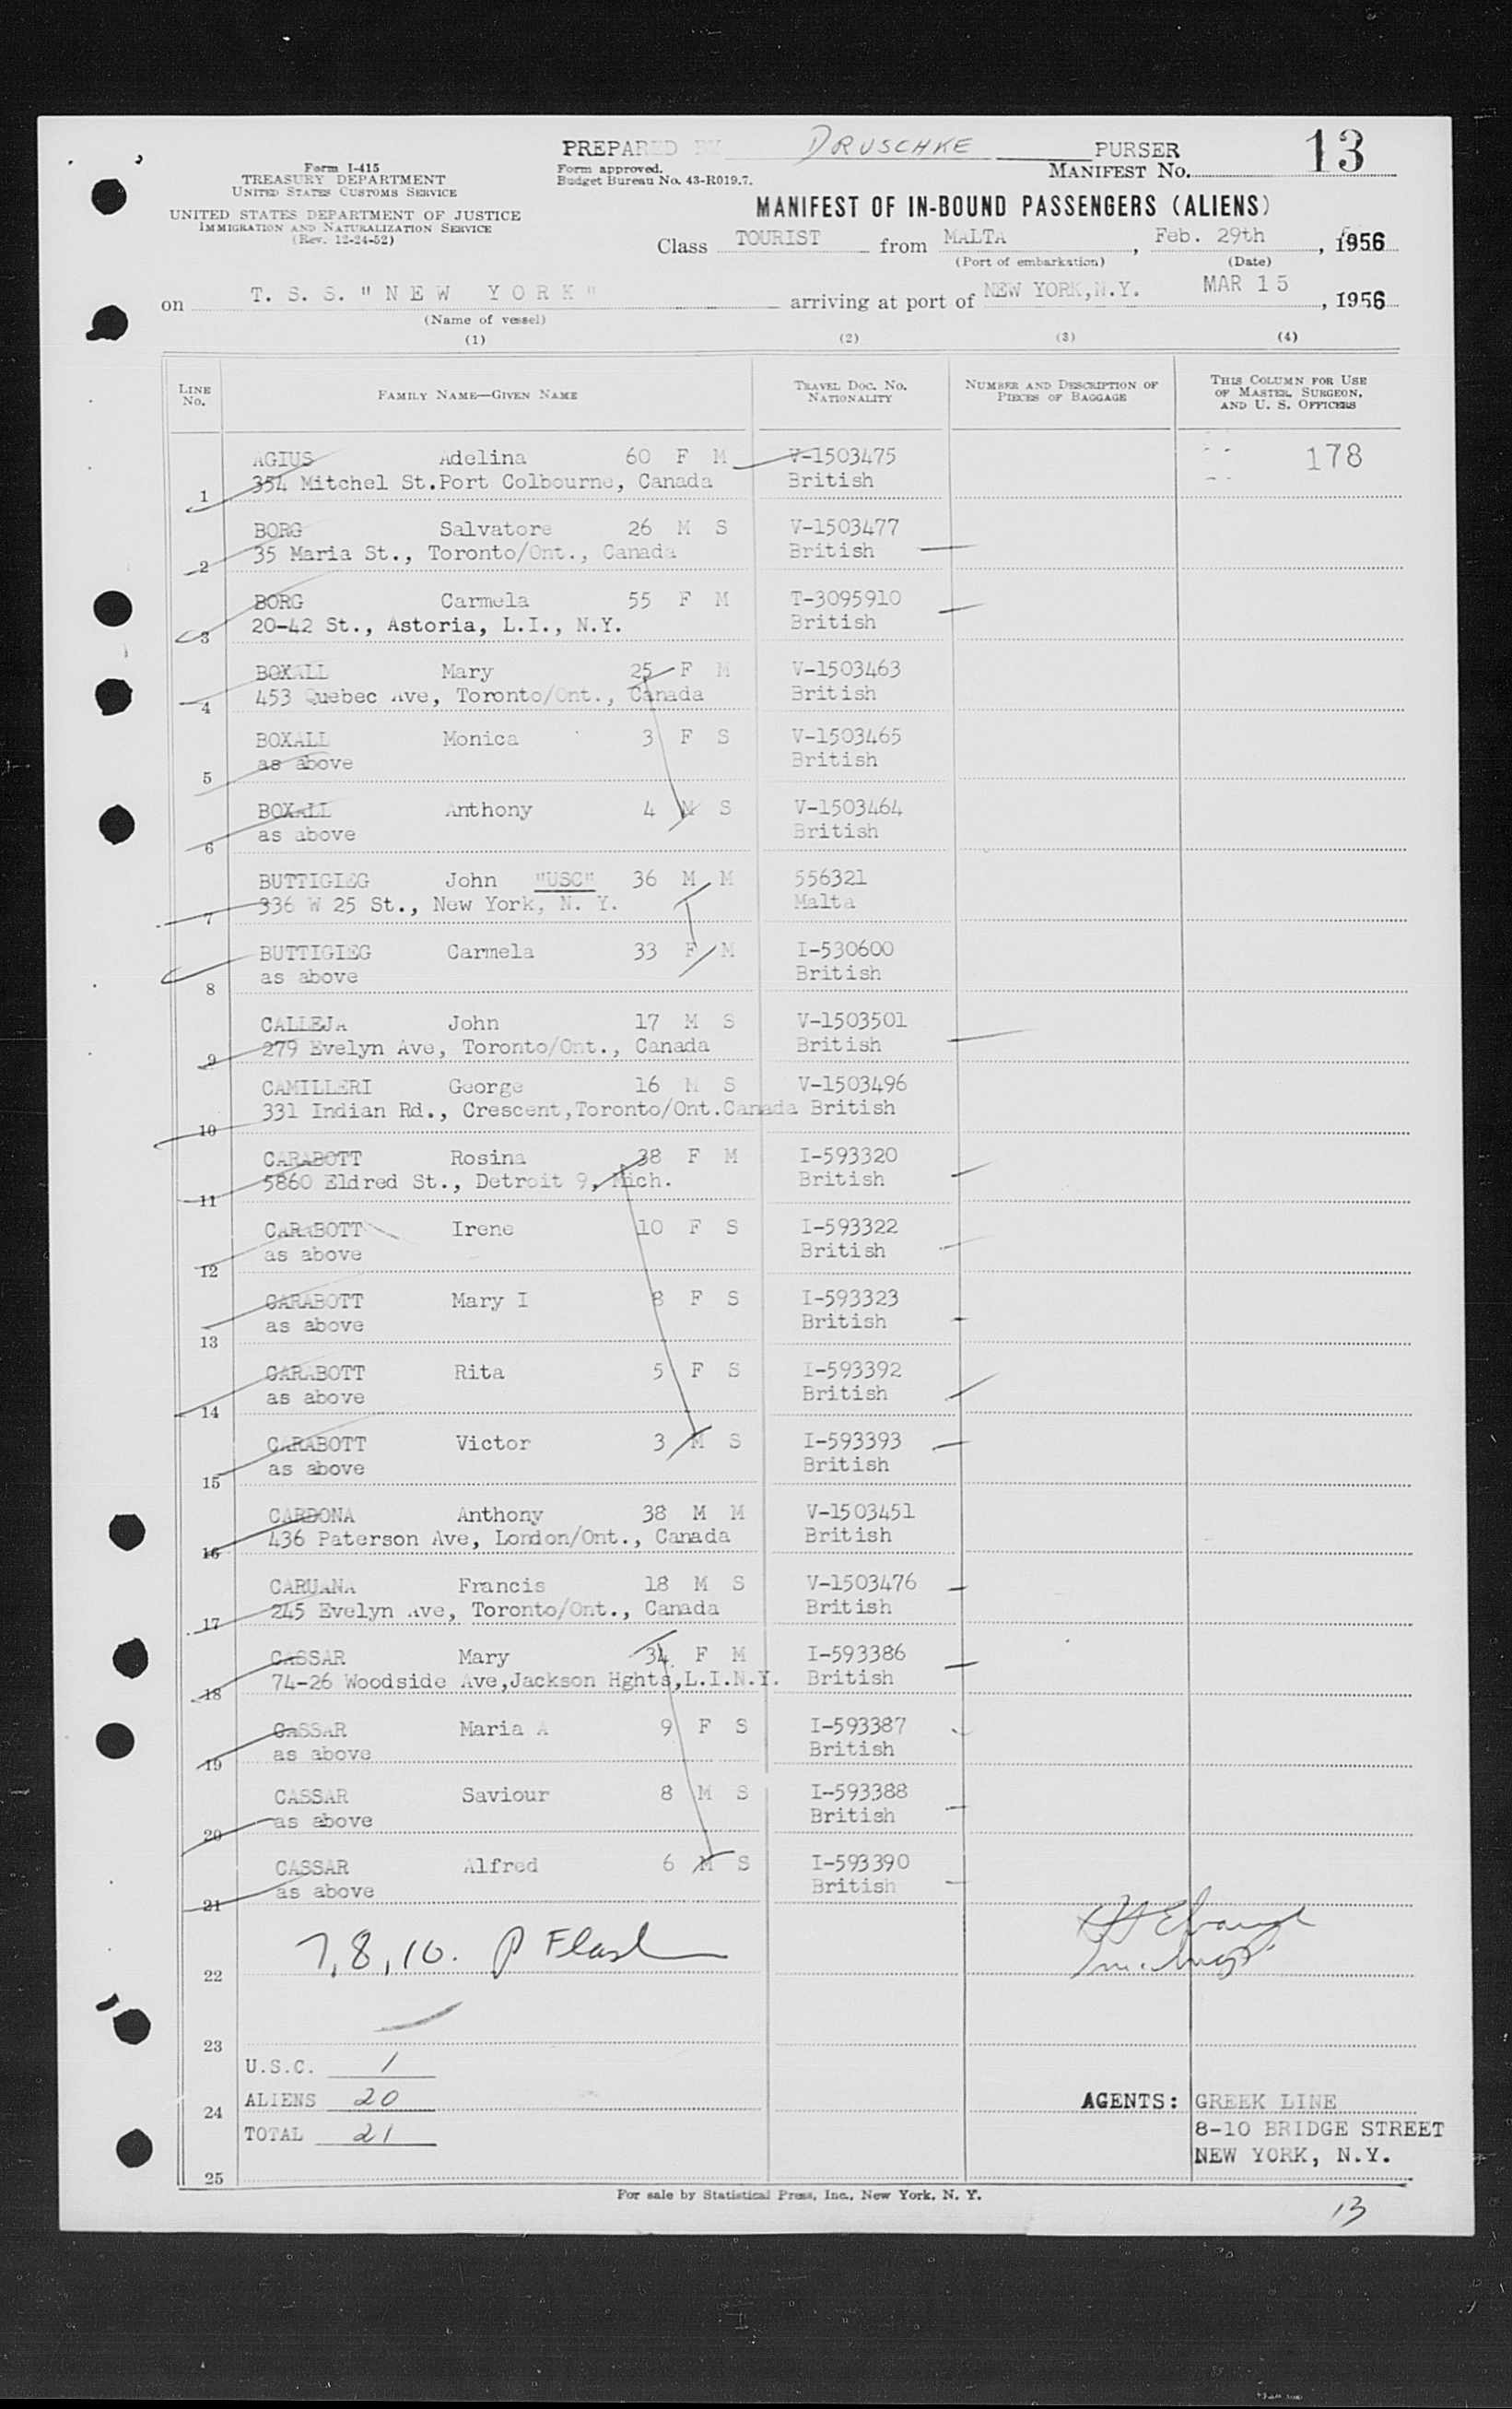 PREPARED BY DRUSCHKE PURSER
Form I-415
TREASURY DEPARTMENT
UNITED STATES CUSTOMS SERVICE
UNITED STATES DEPARTMENT OF JUSTICE
IMMIGRATION AND NATURALIZATION SERVICE
(Rev. 12-24-52)
Form approved.
Budget Bureau No. 43-R019.7.
MANIFEST No. 13
MANIFEST OF IN-BOUND PASSENGERS (ALIENS)
Class TOURIST from MALTA, Feb. 29th, 1956
(Port of embarkation) (Date)
on T. S. S. "NEW YORK" arriving at port of NEW YORK, N.Y. MAR 15, 1956
(Name of vessel)
(1) (2) (3) (4)
LINE No. FAMILY NAME—GIVEN NAME TRAVEL DOC. NO. NATIONALITY NUMBER AND DESCRIPTION OF PIECES OF BAGGAGE THIS COLUMN FOR USE OF MASTER, SURGEON, AND U. S. OFFICERS
AGIUS Adelina 60 F M V-1503475 178
1 354 Mitchel St.Port Colbourne, Canada British
BORG Salvatore 26 M S V-1503477
2 35 Maria St., Toronto/Ont., Canada British
BORG Carmela 55 F M T-3095910
3 20-42 St., Astoria, L.I., N.Y. British
BOXALL Mary 25 F M V-1503463
4 453 Quebec Ave, Toronto/Ont., Canada British
BOXALL Monica 3 F S V-1503465
5 as above British
BOXALL Anthony 4 M S V-1503464
6 as above British
BUTTIGIEG John "USC" 36 M M 556321
7 336 W 25 St., New York, N. Y. Malta
BUTTIGIEG Carmela 33 F M I-530600
8 as above British
CALLEJA John 17 M S V-1503501
9 279 Evelyn Ave, Toronto/Ont., Canada British
CAMILLERI George 16 M S V-1503496
10 331 Indian Rd., Crescent,Toronto/Ont.Canada British
CARABOTT Rosina 38 F M I-593320
11 5860 Eldred St., Detroit 9, Mich. British
CARABOTT Irene 10 F S I-593322
12 as above British
CARABOTT Mary I 8 F S I-593323
13 as above British
CARABOTT Rita 5 F S I-593392
14 as above British
CARABOTT Victor 3 M S I-593393
15 as above British
CARDONA Anthony 38 M M V-1503451
16 436 Paterson Ave, London/Ont., Canada British
CARUANA Francis 18 M S V-1503476
17 245 Evelyn Ave, Toronto/Ont., Canada British
CASSAR Mary 34 F M I-593386
18 74-26 Woodside Ave,Jackson Hghts,L.I.N.Y. British
CASSAR Maria A 9 F S I-593387
19 as above British
CASSAR Saviour 8 M S I-593388
20 as above British
CASSAR Alfred 6 M S I-593390
21 as above British
22 7, 8, 10. P Flash
23
U.S.C. 1
24 ALIENS 20
TOTAL 21
25
AGENTS: GREEK LINE
8-10 BRIDGE STREET
NEW YORK, N.Y.
For sale by Statistical Press, Inc., New York, N. Y.
13